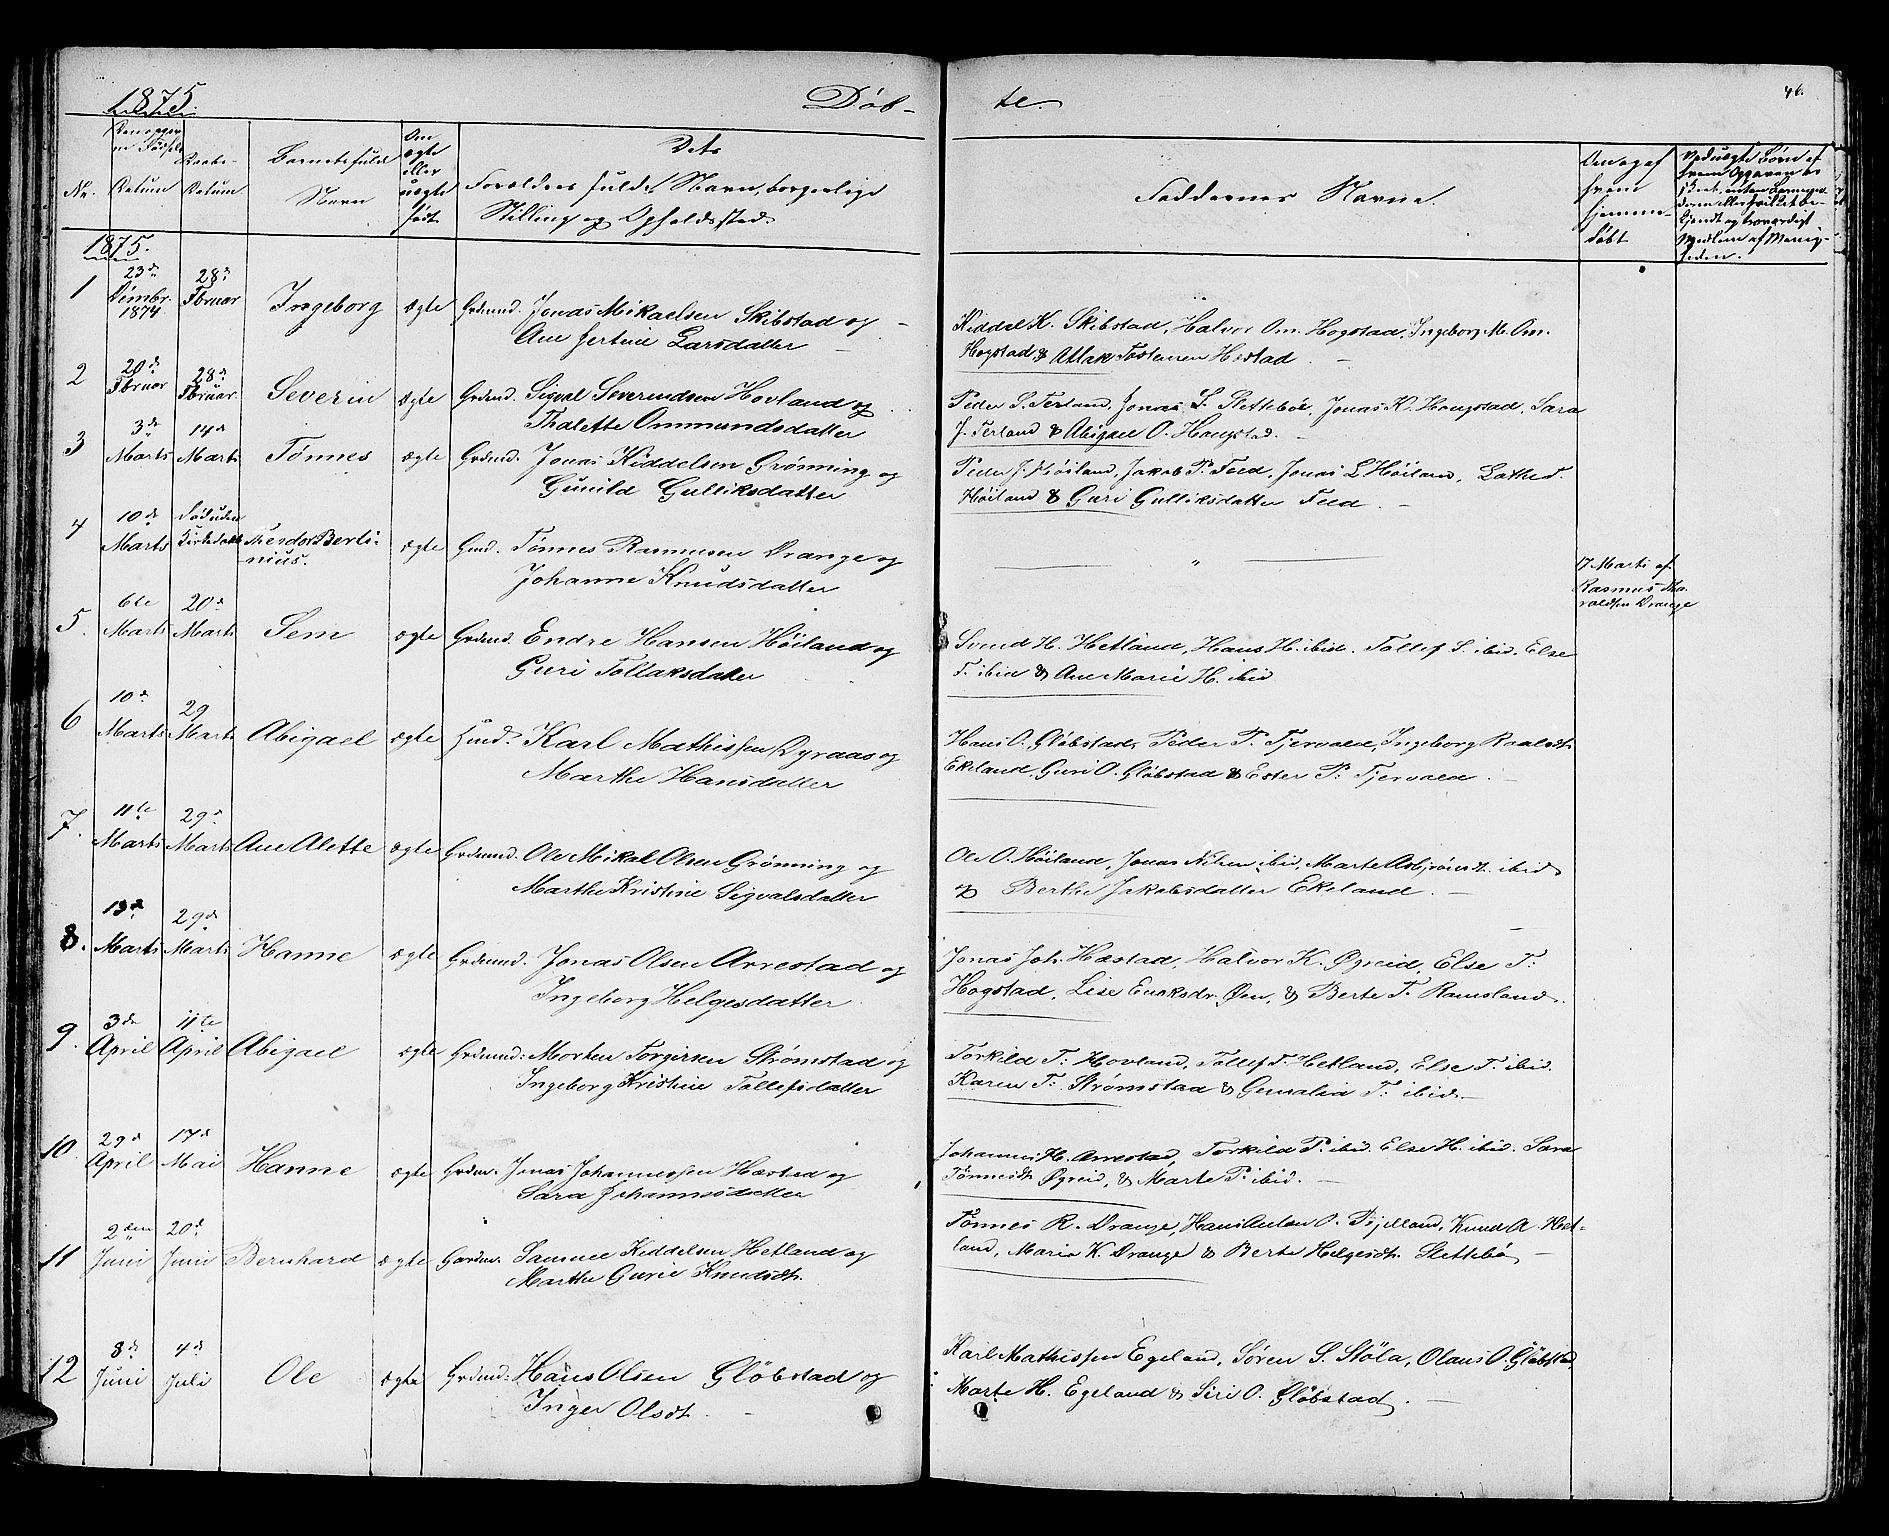 1875
Døb-
te.
46.
Nr.
Datum
Daabs-
Datum
Barnets fulde
Navn
Om
ægte
eller
uægte
født
Dets
Forældres fulde Navn, borgerlige
Stilling og Opholdssted.
Faddernes Navne.
Om og af
hvem
hjemme-
døbt
1875.
1
23de
Dcmbr.
1874
28de
Fbruar
Ingeborg
ægte
Grdmnd. Jonas Mikaelsen Skibstad og
Ane Jertine Larsdatter
Kiddel K. Skibstad, Halvor Om. Hogstad, Ingeborg M. Om.
Hogstad & Atlak Tostensen Hæstad
2
20de
Fbruar
28de
Fbruar
Severin
ægte
Grdmd. Sigval Severindsen Hovland og
Thalette Ommundsdatter
Peder S. Terland, Jonas S. Slettebøe, Jonas K. Haugstad, Sara
J. Terland & Abigael O. Haugstad.
3
3de
Marts
14de
Marts
Tønnes
ægte
Grdmd. Jonas Kiddelsen Grønning og
Gunild Gulliksdatter
Peder J. Høiland, Jakob P. Feed, Jonas L. Høiland,
Høiland & Guri Gulliksdatter Feed.
4
10de
Marts
Død uden
Kirkedaab
Theodor Berti-
nius.
ægte
Gmd. Tønnes Rasmusen Drange og
Johanne Knudsdatter
"
17 Marts af
Rasmus Ha-
raldsen Drange
5.
6te
Marts
20de
Marts
Sem
ægte
Grdmd. Endre Hansen Høiland og
Guri Tollaksdatter
Svend H. Hetland, Hans H. ibid. Tollef S. ibid. Else
T. ibid & Ane Marie H. ibid
6
10de
Marts
29
Marts
Abigael
ægte
Hmd. Karl Mathissen Dyraas og
Marthe Hansdatter
Hans O. Gløbstad, Peder P. Tjervald, Ingeborg Roaldsdt.
Ekeland, Guri O. Gløbstad & Ester P. Tjervald.
7.
11te
Marts
29de
Marts
Ane Alette
ægte
Grdmnd. Ole Mikal Olsen Grønning og
Marthe Kristine Sigvalsdatter
Ole O. Høiland, Jonas Nilsen ibid, Marte Asbjørnsdt. ibid
og Berthe Jakobsdatter Ekeland.
8.
13de
Marts
29de
Marts
Hanne
ægte
Grdmnd. Jonas Olsen Arrestad og
Ingeborg Helgesdatter
Jonas Joh. Hæstad, Halvor K. Øgreid, Else T:
Hogstad, Lise Eriksdr. Øen, & Berte T. Ramsland.
9.
3de
April
11te
April
Abigael
ægte
Grdmnd: Morten Torgersen Strømstad og
Ingeborg Kristine Tollefsdatter
Torkild T: Hovland, Tollef T: Hetland, Else T: ibid.
Karen T: Strømstad & T: ibid.
10
29de
April
17de
Mai
Hanne
ægte
Grdm. Jonas Johannessen Hæstad og
Sara Johannesdatter
Johannes H. Arrestad, Torkild P. ibid. Else H. ibid. Sara
Tønnesdt. Øgreid, & Marte P. ibid.
11
2den
Juni
20de
Juni
Bernhard
ægte
Gardm. Samuel Kiddelsen Hetland og
Marthe Gurie Knudsdt.
Tønnes R. Drange, Hans Anton P. Bjelland, Knud A. Het-
land, Maria K. Drange & Berte Helgesdt. Slettebø
12
8de
Juni
4de
Juli
Ole
ægte
Grdmd: Hans Olsen Gløbstad og
Inger Olsdt.
Karl Mathissen Egeland, Søren S. Støla, Olaus O. Gløbstad
Marte H. Egeland & Siri O. Gløbstad.